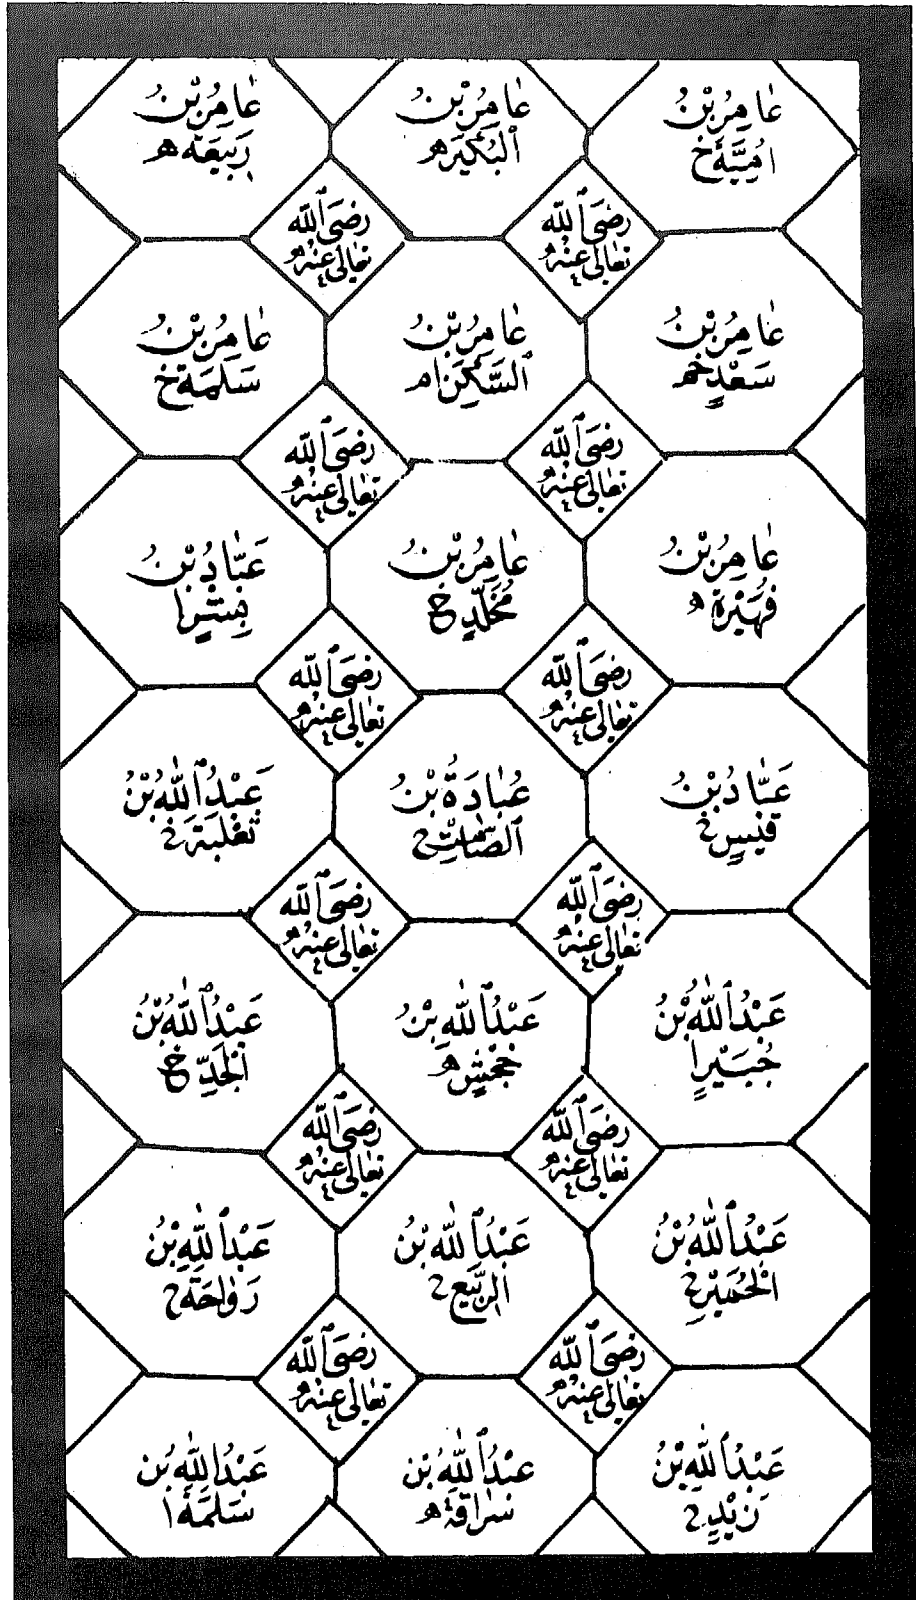 عَامِرُ بْنُ
اُمَيَّةَ خ
عَامِرُ بْنُ
الْبُكَيْرِ ه
عَامِرُ بْنُ
رَبِيعَةَ ه
رَضِيَ اللّٰه
تَعَالٰى عَنْهُ
رَضِيَ اللّٰه
تَعَالٰى عَنْهُ
عَامِرُ بْنُ
سَعْدٍ
عَامِرُ بْنُ
السَّكَنِ ا
عَامِرُ بْنُ
سَلَمَةَ خ
رَضِيَ اللّٰه
تَعَالٰى عَنْهُ
رَضِيَ اللّٰه
تَعَالٰى عَنْهُ
عَامِرُ بْنُ
فُهَيْرَةَ ه
عَامِرُ بْنُ
مُخَلَّدٍ خ
عَبَّادُ بْنُ
بِشْرٍ ا
رَضِيَ اللّٰه
تَعَالٰى عَنْهُ
رَضِيَ اللّٰه
تَعَالٰى عَنْهُ
عَبَّادُ بْنُ
قَيْسٍ خ
عُبَادَةُ بْنُ
الصَّامِتِ خ
عَبْدُ اللّٰهِ بْنُ
ثَعْلَبَةَ خ
رَضِيَ اللّٰه
تَعَالٰى عَنْهُ
رَضِيَ اللّٰه
تَعَالٰى عَنْهُ
عَبْدُ اللّٰهِ بْنُ
جُبَيْرٍ ا
عَبْدُ اللّٰهِ بْنُ
جَحْشٍ ه
عَبْدُ اللّٰهِ بْنُ
الْجَدِّ خ
رَضِيَ اللّٰه
تَعَالٰى عَنْهُ
رَضِيَ اللّٰه
تَعَالٰى عَنْهُ
عَبْدُ اللّٰهِ بْنُ
الْحُمَيْرِ خ
عَبْدُ اللّٰهِ بْنُ
الرَّبِيعِ خ
عَبْدُ اللّٰهِ بْنُ
رَوَاحَةَ خ
رَضِيَ اللّٰه
تَعَالٰى عَنْهُ
رَضِيَ اللّٰه
تَعَالٰى عَنْهُ
عَبْدُ اللّٰهِ بْنُ
زَيْدٍ خ
عَبْدُ اللّٰهِ بْنُ
سُرَاقَةَ ه
عَبْدُ اللّٰهِ بْنُ
سَلَمَةَ ا